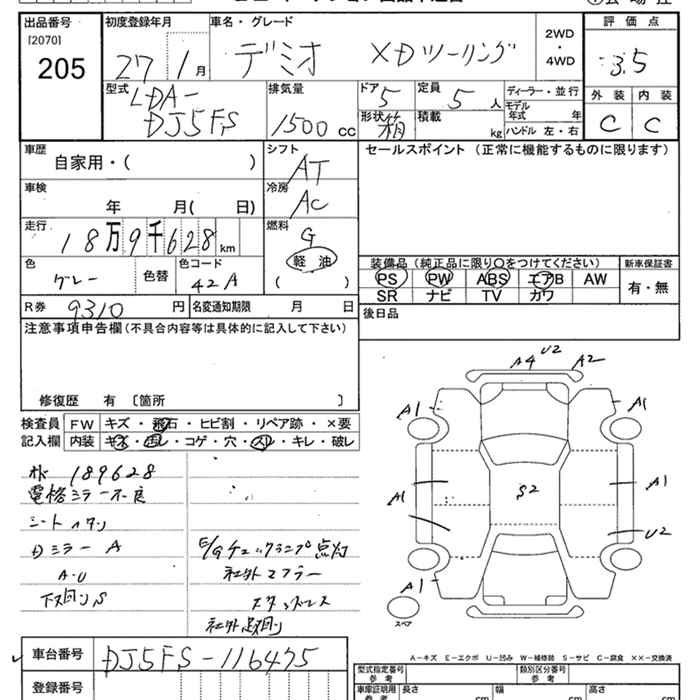 出品番号
[2070]
205
初度登録年月
27 1月
車名・グレード
デミオ XDツーリング
2WD
・
4WD
評価点
3.5
型式
LDA-
DJ5FS
排気量
1500 cc
ドア 5
形状 箱
定員
5 人
積載
kg
ディーラー・並行
モデル
年式 年
ハンドル 左・右
外装 内装
C C
車歴
自家用・( )
シフト
AT
セールスポイント (正常に機能するものに限ります)
車検
年 月( 日)
冷房
AC
走行
18万9千628km
燃料
G
軽油
( )
色
グレー
色替
色コード
42A
装備品 (純正品に限り○をつけてください)
PS PW ABS エアB AW
SR ナビ TV カワ
新車保証書
有・無
R券 9310 円
名変通知期限 月 日
後日品
注意事項申告欄 (不具合内容等は具体的に記入して下さい)
修復歴 有 〔箇所 〕
検査員
記入欄
FW キズ・飛石・ヒビ割・リペア跡・×要
内装 キズ・汚レ・コゲ・穴・スレ・キレ・破レ
189628
電格ミラー不良
シートハタリ
Dミラー A
A.U
下廻りS
E/Gチェックランプ点灯
社外マフラー
社外足廻り
A4 U2 A2
A1 A1
A1 S2 A1
U2
A1
スペア
A-キズ E-エクボ U-凹み W-補修跡 S-サビ C-腐食 ××-交換済
車台番号 DJ5FS-116475
登録番号
型式指定番号
参考
類別区分番号
参考
車庫証明用
参考
長さ cm
幅 cm
高さ cm